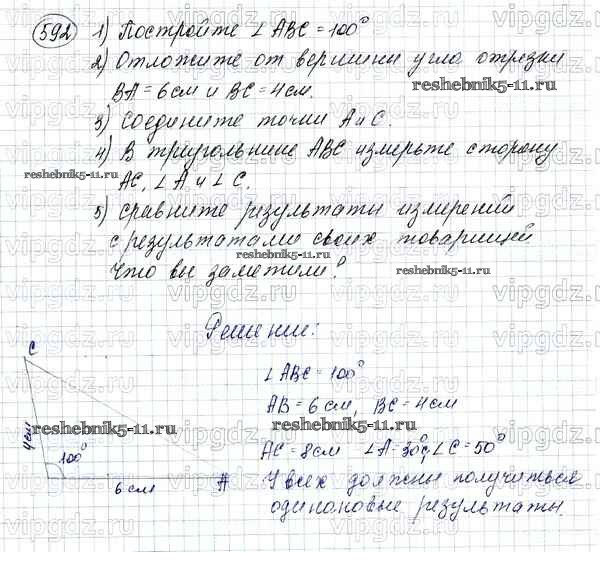 592 1) Постройте ∠ ABC = 100°
2) Отложите от вершины угла отрезки
BA = 6 см и BC = 4 см.
3) Соедините точки A и C.
4) В треугольнике ABC измерьте сторону
AC, ∠ A и ∠ C.
5) сравните результаты измерений
с результатами своих товарищей
Что вы заметили?
Решение:
∠ ABC = 100°
AB = 6 см, BC = 4 см
AC = 8 см ∠A = 30°, ∠C = 50°
У всех должны получиться
одинаковые результаты.
C
4 см
100°
6 см
A
reshebnik5-11.ru
reshebnik5-11.ru
reshebnik5-11.ru
reshebnik5-11.ru
reshebnik5-11.ru
vipgdz.com